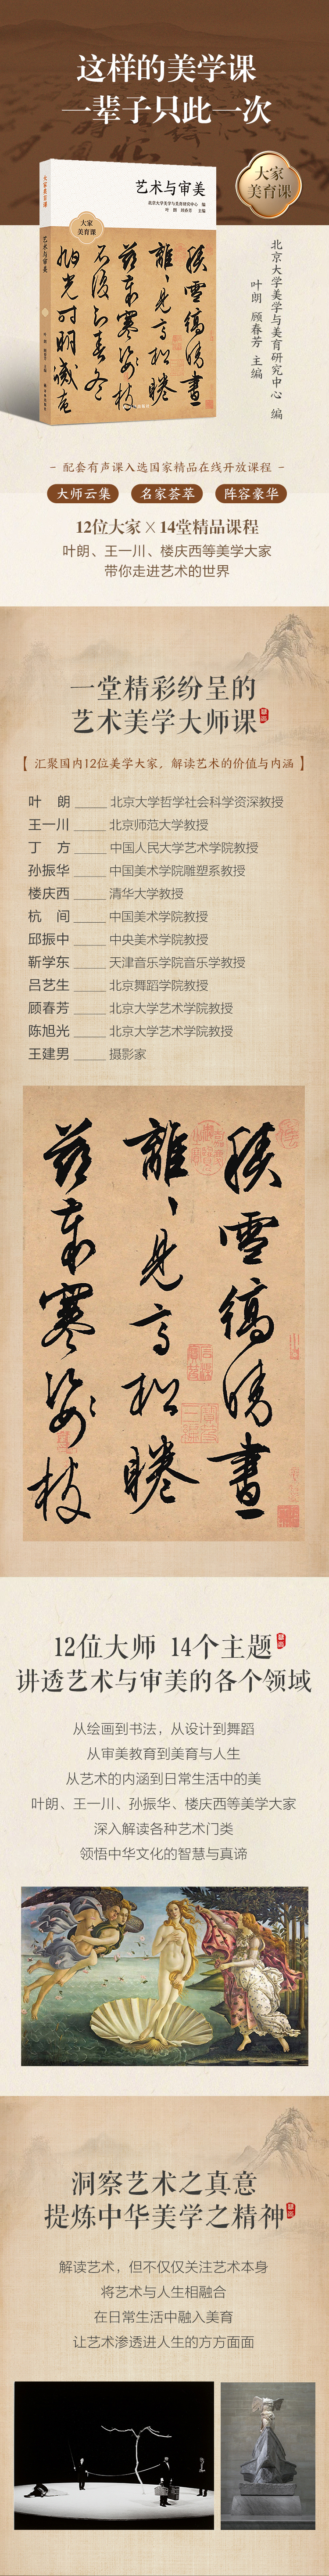 这样的美学课
一辈子只此一次
大家
美育课
大家美育课
艺术与审美
艺术与审美
北京大学美学与美育研究中心 编
叶朗 顾春芳 主编
大家
美育课
积雪缟晴昼
离离见高松
兹来寒姿枝
北京大学美学与美育研究中心 编
叶朗 顾春芳 主编
- 配套有声课入选国家精品在线开放课程 -
大师云集 名家荟萃 阵容豪华
12位大家 X 14堂精品课程
叶朗、王一川、楼庆西等美学大家
带你走进艺术的世界
一堂精彩纷呈的
艺术美学大师课
【 汇聚国内12位美学大家，解读艺术的价值与内涵 】
叶 朗 ______ 北京大学哲学社会科学资深教授
王一川 ______ 北京师范大学教授
丁 方 ______ 中国人民大学艺术学院教授
孙振华 ______ 中国美术学院雕塑系教授
楼庆西 ______ 清华大学教授
杭 间 ______ 中国美术学院教授
邱振中 ______ 中央美术学院教授
靳学东 ______ 天津音乐学院音乐学教授
吕艺生 ______ 北京舞蹈学院教授
顾春芳 ______ 北京大学艺术学院教授
陈旭光 ______ 北京大学艺术学院教授
王建男 ______ 摄影家
12位大师 14个主题
讲透艺术与审美的各个领域
从绘画到书法，从设计到舞蹈
从审美教育到美育与人生
从艺术的内涵到日常生活中的美
叶朗、王一川、孙振华、楼庆西等美学大家
深入解读各种艺术门类
领悟中华文化的智慧与真谛
洞察艺术之真意
提炼中华美学之精神
解读艺术，但不仅仅关注艺术本身
将艺术与人生相融合
在日常生活中融入美育
让艺术渗透进人生的方方面面